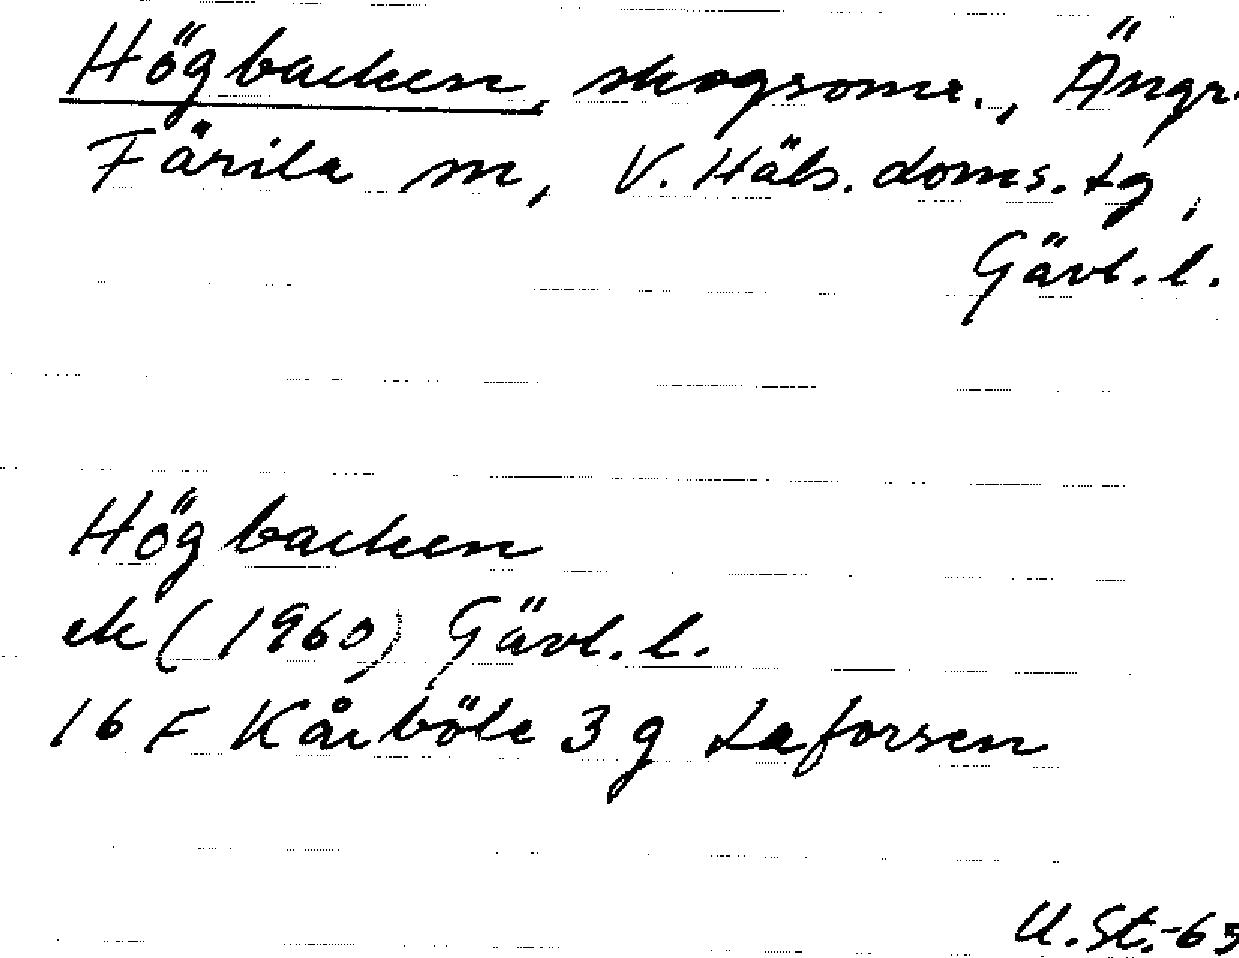 Högbacken, skogsområ., Ängr.
Färila sn, V. Häls. doms. tg,
Gävl. l.
Högbacken
ek (1960) Gävl. l.
16 F Kårböle 3 g Laforsen
U. St. -63